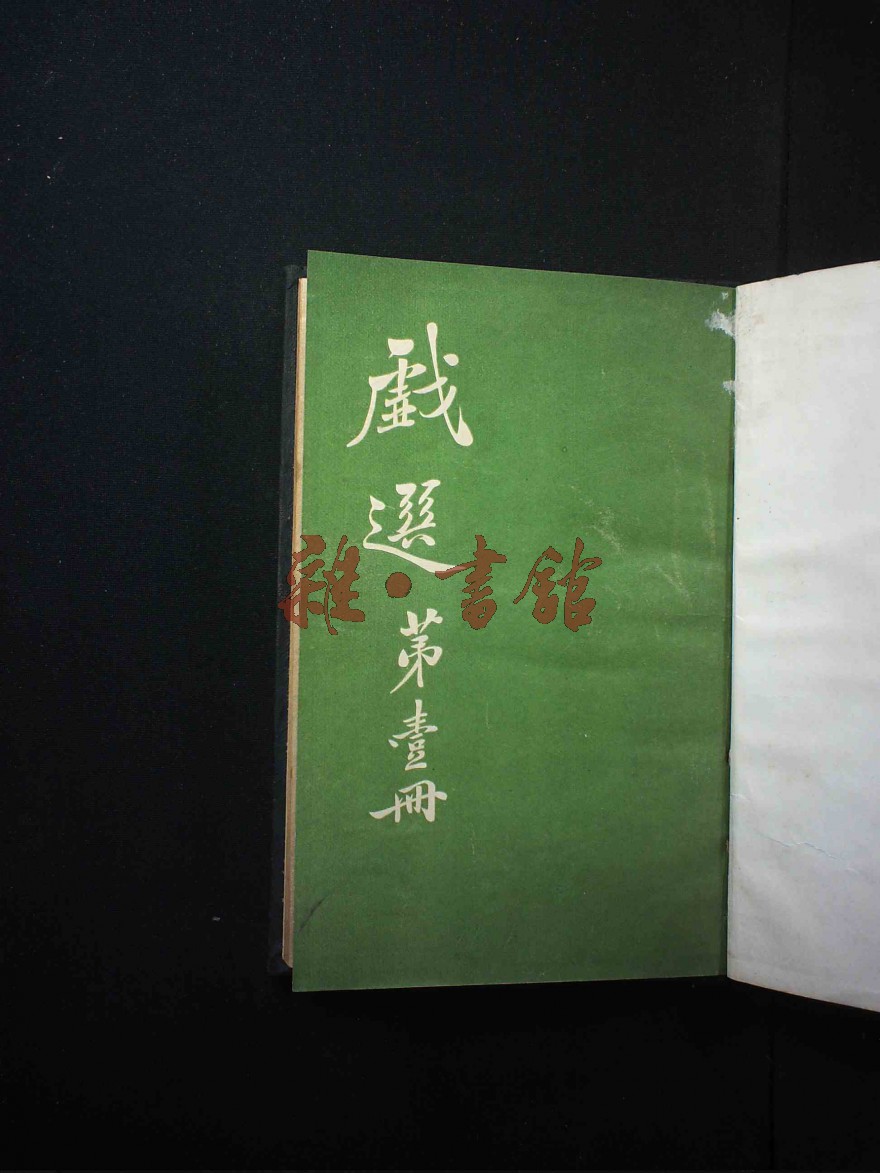 戲選第壹冊
雜·書館